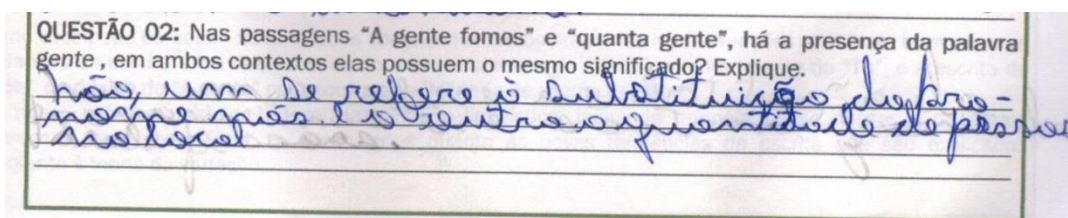 QUESTÃO 02: Nas passagens “A gente fomos” e “quanta gente”, há a presença da palavra
gente , em ambos contextos elas possuem o mesmo significado? Explique.
não, um se refere à substituição do pro-
nome nós e o outro a quantidade de pessoas
no local